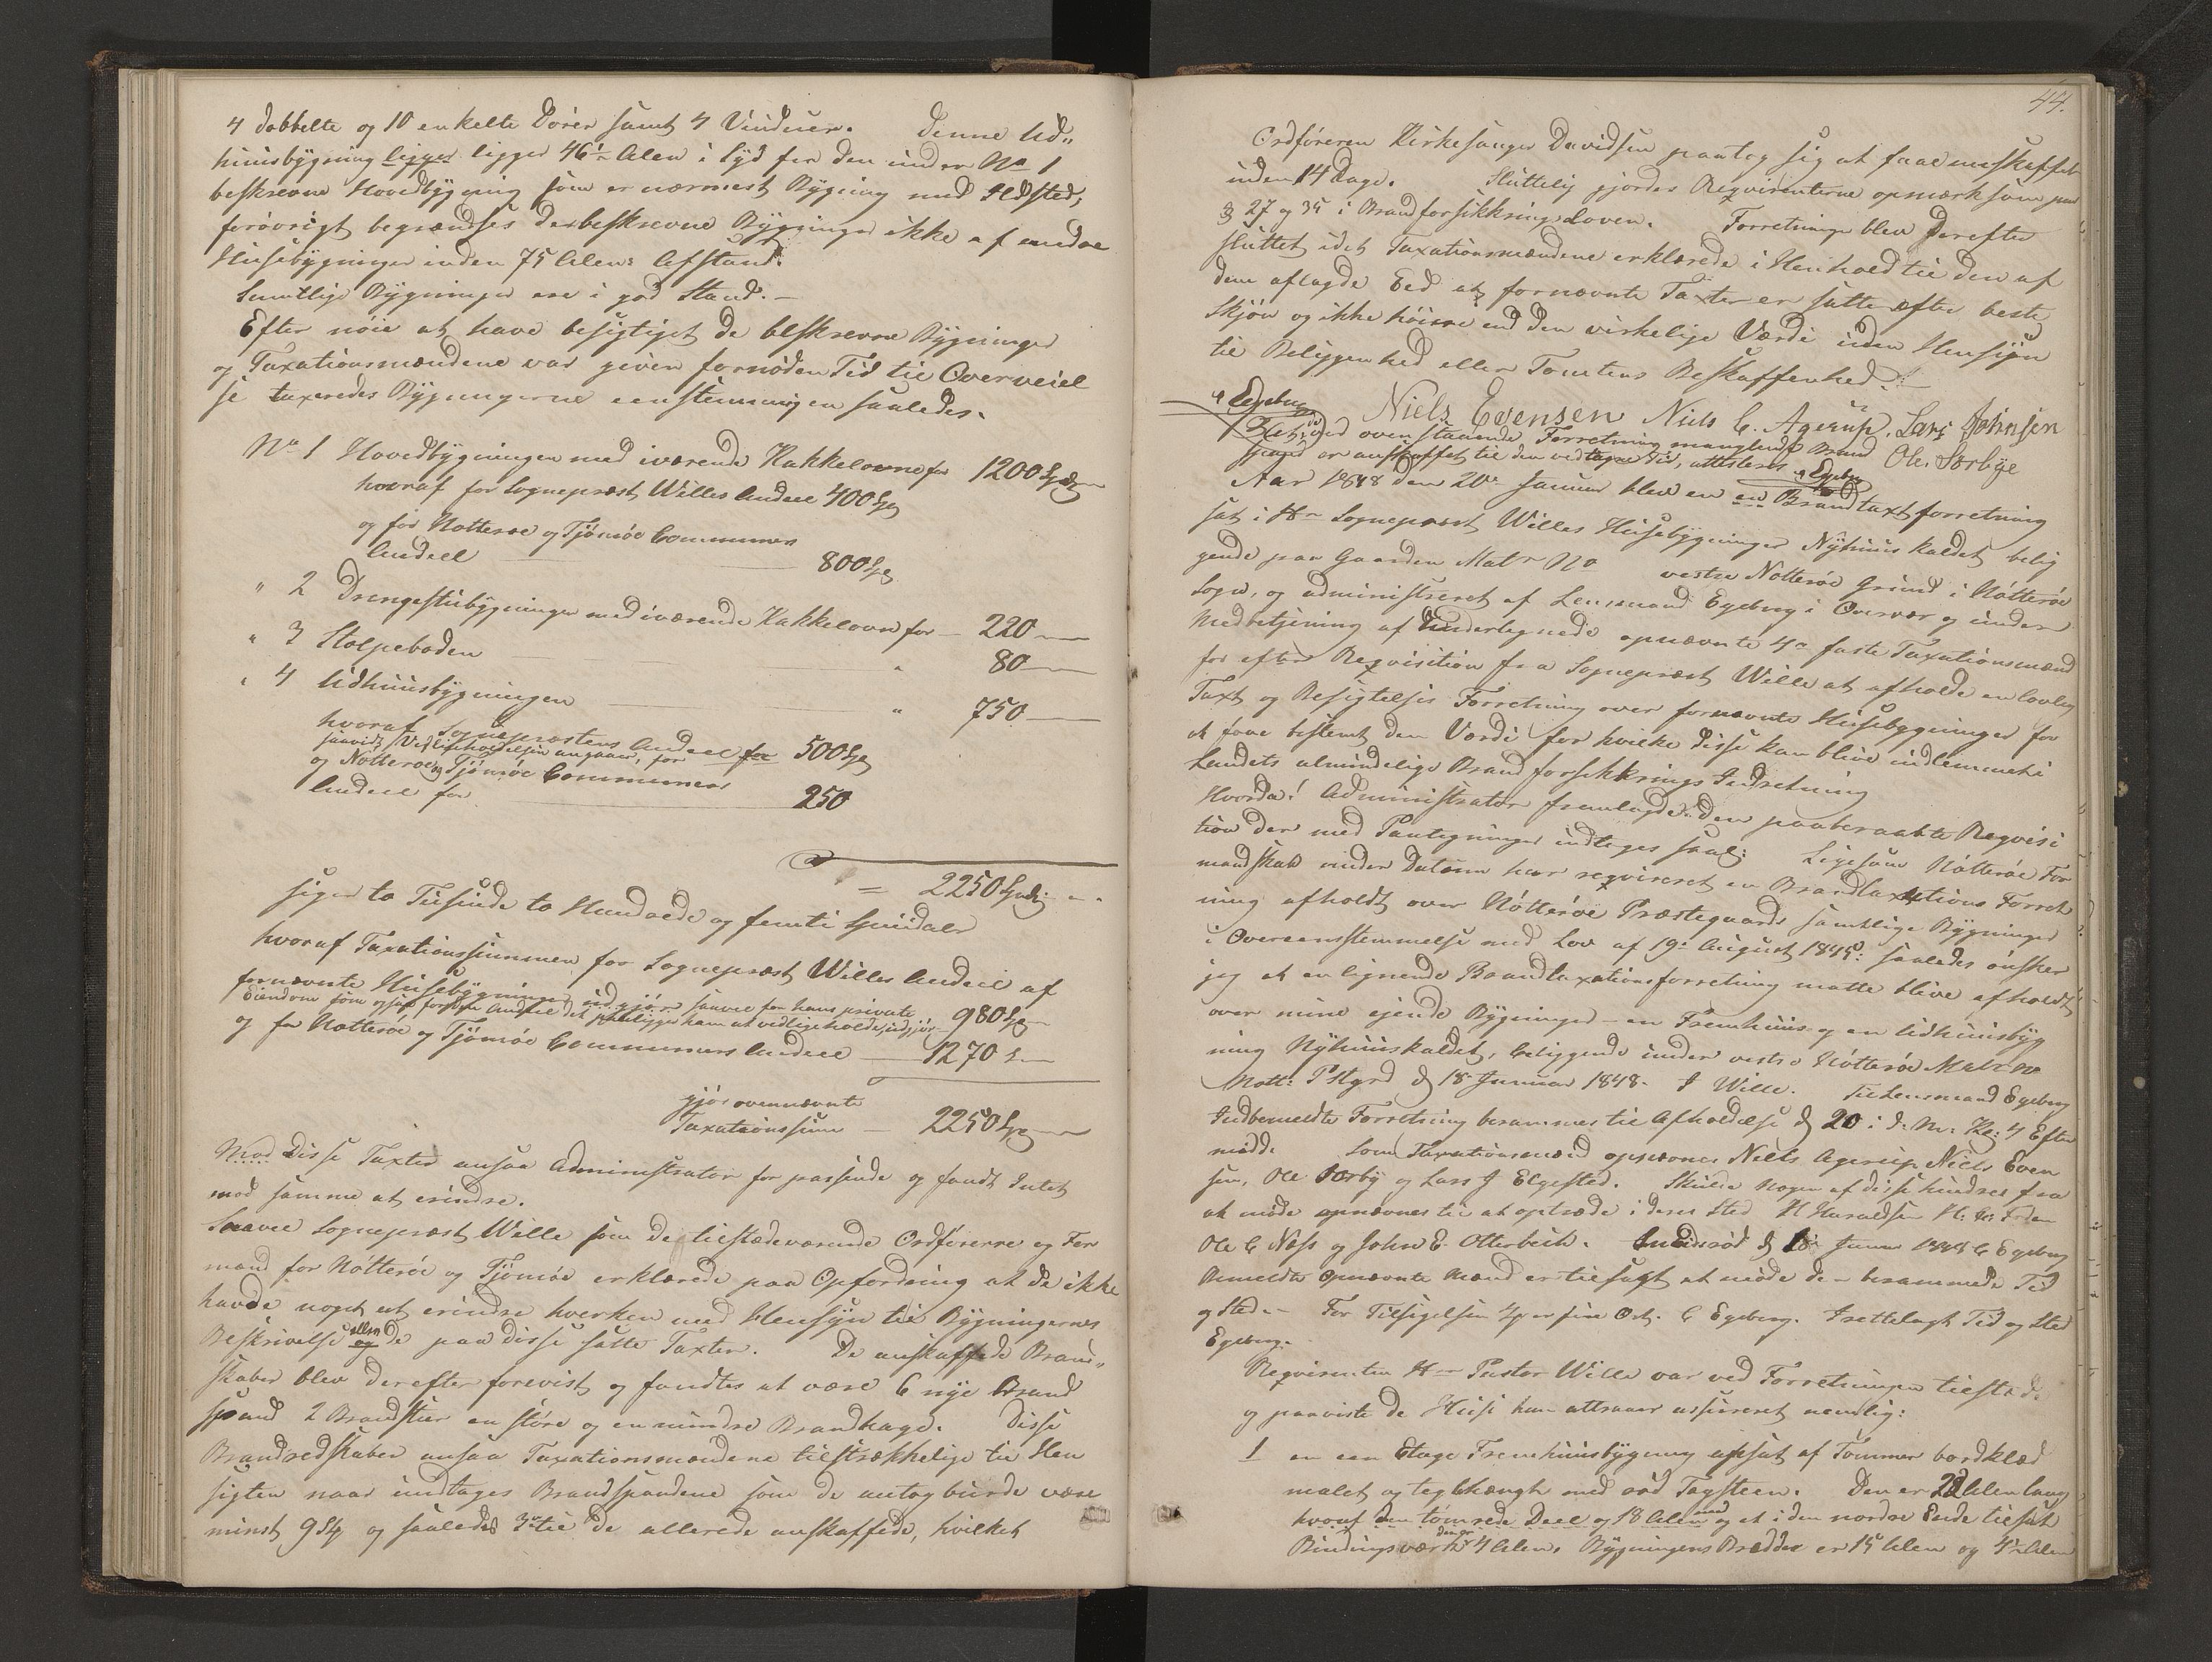 4 dobbelte og 10 enkelte Dörer samt 4 Vinduer. Denne Ud„
huusbygning ligger ligger 46½ Alen i Syd for den under No 1
beskrevne Hovedbygning som er nærmest Bygning med Ildsted,
forövrigt begrændses de beskrevne Bygninger ikke af andre
Huusebygninger inden 75 Alens Afstand.
Samtlige Bygninger ere i god Stand. —
Efter nöie at have besigtiget de beskrevne Bygninger
og Taxationsmændene var given fornöden Tid til Overveiel
se taxeredes Bygningerne eenstemmigen saaledes.
No 1 Hovedbygningen med iværende Kakkelovne for 1200 Spd
hvoraf for Sognepræst Willes Andeel 400 Spd
og for Nötteröe og Tjömöe Communers
Andeel — 800 Spd
" 2 Drengestubygningen med iværende Kakkelovn for — 220 —
" 3 Stolpeboden — " 80 —
" 4 Udhuusbygningen — " 750 —
hvoraf Sognepræstens Andeel for 500 Spd
saavidt Vedligeholdelsen angaaer, for
og Nötteröe og Tjömöe Communers
Andeel for — 250
= 2250 Spd
siger to Tusinde to Hundrede og femti Speciedaler
hvoraf Taxationssummen for Sognepræst Willes Andeel af
fornævnte Huusebygninger udgjör saavel for hans private
Eiendom som ogsaa for den Andeel det paaligger ham at vedligeholde, udgjör 980 Spd
og for Nötteröe og Tjömöe Communers Andeel — 1270 S —
gjör ovennævnte
Taxationssum — 2250 Spd
Mod Disse Taxter ansaa Administrator for passende og fandt Intet
mod samme at erindre.
Saavel Sognepræst Wille som de tilstedeværende Ordförerne og For
mænd for Nötteröe og Tjömöe erklærede paa Opfordring at de ikke
havde noget at erindre hverken med Hensyn til Bygningernes
Beskrivelse eller og de paa disse satte Taxter. De anskaffede Brand„
skaber blev derefter forevist og fandtes at være 6 nye Brand
spand 2 Brandstier en störe og en mindre Brandhage. Disse
Brandredskaber ansaa Taxationsmændene tilstrækkelige til Hen
sigten naar undtages Brandspandene som de antog burde være
minst 9 Stk og saaledes 3de til de allerede anskaffede, hvilket
44.
Ordföreren Kirkesanger Davidsen paatog sig at faae anskaffet
inden 14 Dage. Sluttelig gjordes Reqvirenterne opmærksom paa
§ 27 og 35 i Brandforsikkringsloven. Forretningen blev derefter
sluttet idet Taxationsmændene erklærede i Henhold til den af
dem aflagde Eed at fornævnte Taxter er satte efter beste
Skjön og ikke höiere end den virkelige Værdi uden Hensyn
til Beliggenhed eller Tomtens Beskaffenhed. —
Egeberg Niels Evensen Niels C. Agerup. Lars Johnsen
ved ovenstaaende Forretning manglende Brand Ole Sörbye
spand er anskaffet til den vedtagne Tid, attesteres Egeberg
Aar 1848 den 20de Januar blev en en Brandtaxtforretning
sat i Hr Sognepræst Willes Huusebygninger Nyhuus kaldet belig
gende paa Gaarden Matr No vestre Nötteröe Grund i Nötteröe
Sogn, og administreret af Lensmand Egeberg i Overvær og under
Medretjening af Undertegnede opnævnte 4re faste Taxationsmænd
for efter Reqvisition fra Sognepræst Wille at afholde en lovlig
Taxt og Besigtelses Forretning over fornævnte Huusebygninger for
at faae bestemt den Værdi for hvilke disse kan blive indlemmet i
Landets almindelige Brandforsikkrings Indretning
Hvorda! Administrator fremlagde den paaberaabte Reqvisi
tion der med Paategninger indtages saal: Ligesom Nötteröe For
mandskab under Datum har reqvireret en Brandtaxations Forret
ning afholdt over Nötteröe Præstegaards samtlige Bygninger
i Overeensstemmelse med Lov af 19de August 1845: saaledes önsker
jeg at en lignende Brandtaxationsforretning maatte blive afholdt
over mine eiende Bygninger — en Fremhuus og en Udhuusbyg
ning Nyhuus kaldet, beliggende under vestre Nötteröe Matr No
Nött: Pstgrd d 18 Januar 1848. J Wille. Til Lensmand Egeberg
Indbemeldte Forretning berammes til Afholdelse d 20 i d. M. Kl: 4 Efter
middag Som Taxationsmænd opnævnes Niels Agerup Niels Even
sen, Ole Sörby og Lars J Elgested. Skulde nogen af disse hindres fra
at möde opnævnes til at optræde i deres Sted H Haraldsen
Ole C Næss og Johan E. Otterbech. d 18 Januar 1848 C Egeberg
Anmeldte opnævnte Mænd er tilsagt at möde den berammede Tid
og Sted. — For Tilsigelsen 4 Ort. C Egeberg. Irettelagt Tid og Sted
Egeberg.
Reqvirenten Hr Pastor Wille var ved Forretningen tilstede
og paaviste de Huse han attraaer assureret nemlig:
1 en een Etage Fremhuusbygning opsat af Tömmer bordklæd
malet og teglhængt med röd Tagsteen. Den er 22 Alen lang
hvoraf den tömrede Deel og 18 Alen og et i den nordre Ende tilsat
Bindingsværk den er 4 Alen. Bygningens Bredde er 15 Alen og 4½ Alen